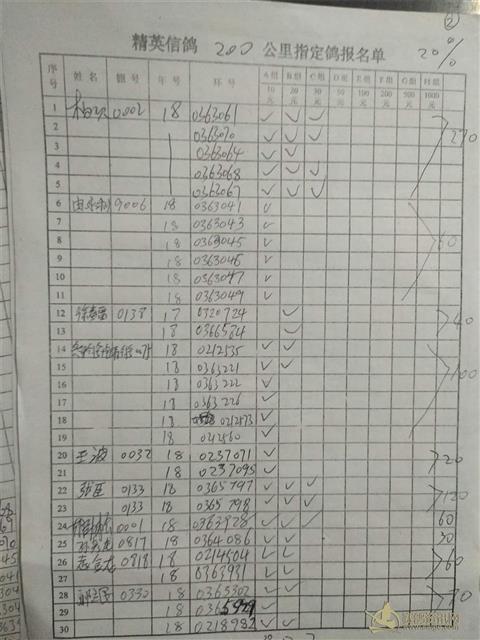 ②
精英信鸽 200 公里指定鸽报名单 20%
序号 姓名 棚号 年号 环号 A组10元 B组20元 C组30元 D组50元 E组100元 F组200元 G组500元 H组1000元
1 0002 18 0363061 ✓ ✓ ✓
2 0363070 ✓ ✓ ✓ 270
3 0363064 ✓ ✓
4 0363068 ✓ ✓ ✓
5 0363067 ✓ ✓ ✓
6 9006 18 0363041 ✓
7 18 0363043 ✓
8 18 0363045 ✓ 60
9 18 0363046 ✓
10 18 0363047 ✓
11 18 0363049 ✓
12 0138 17 0320724 ✓ 40
13 18 0366584 ✓
14 18 0212535 ✓ ✓
15 18 0363221 ✓ ✓
16 18 0363222 ✓ 100
17 18 0363226 ✓
18 18 0212573 ✓
19 18 0212560 ✓
20 王波 0032 18 0237071 ✓ 20
21 18 0237095 ✓
22 0133 18 0365797 ✓ ✓ ✓ 120
23 0133 18 0365798 ✓ ✓ ✓
24 0001 18 0363928 ✓ ✓ ✓ 60
25 0817 18 0364086 ✓ ✓ 30
26 0818 18 0214504 ✓ ✓ 60
27 18 0363931 ✓ ✓
28 0330 18 0365302 ✓ ✓
29 18 ✓
30 18 0218982 ✓ ✓